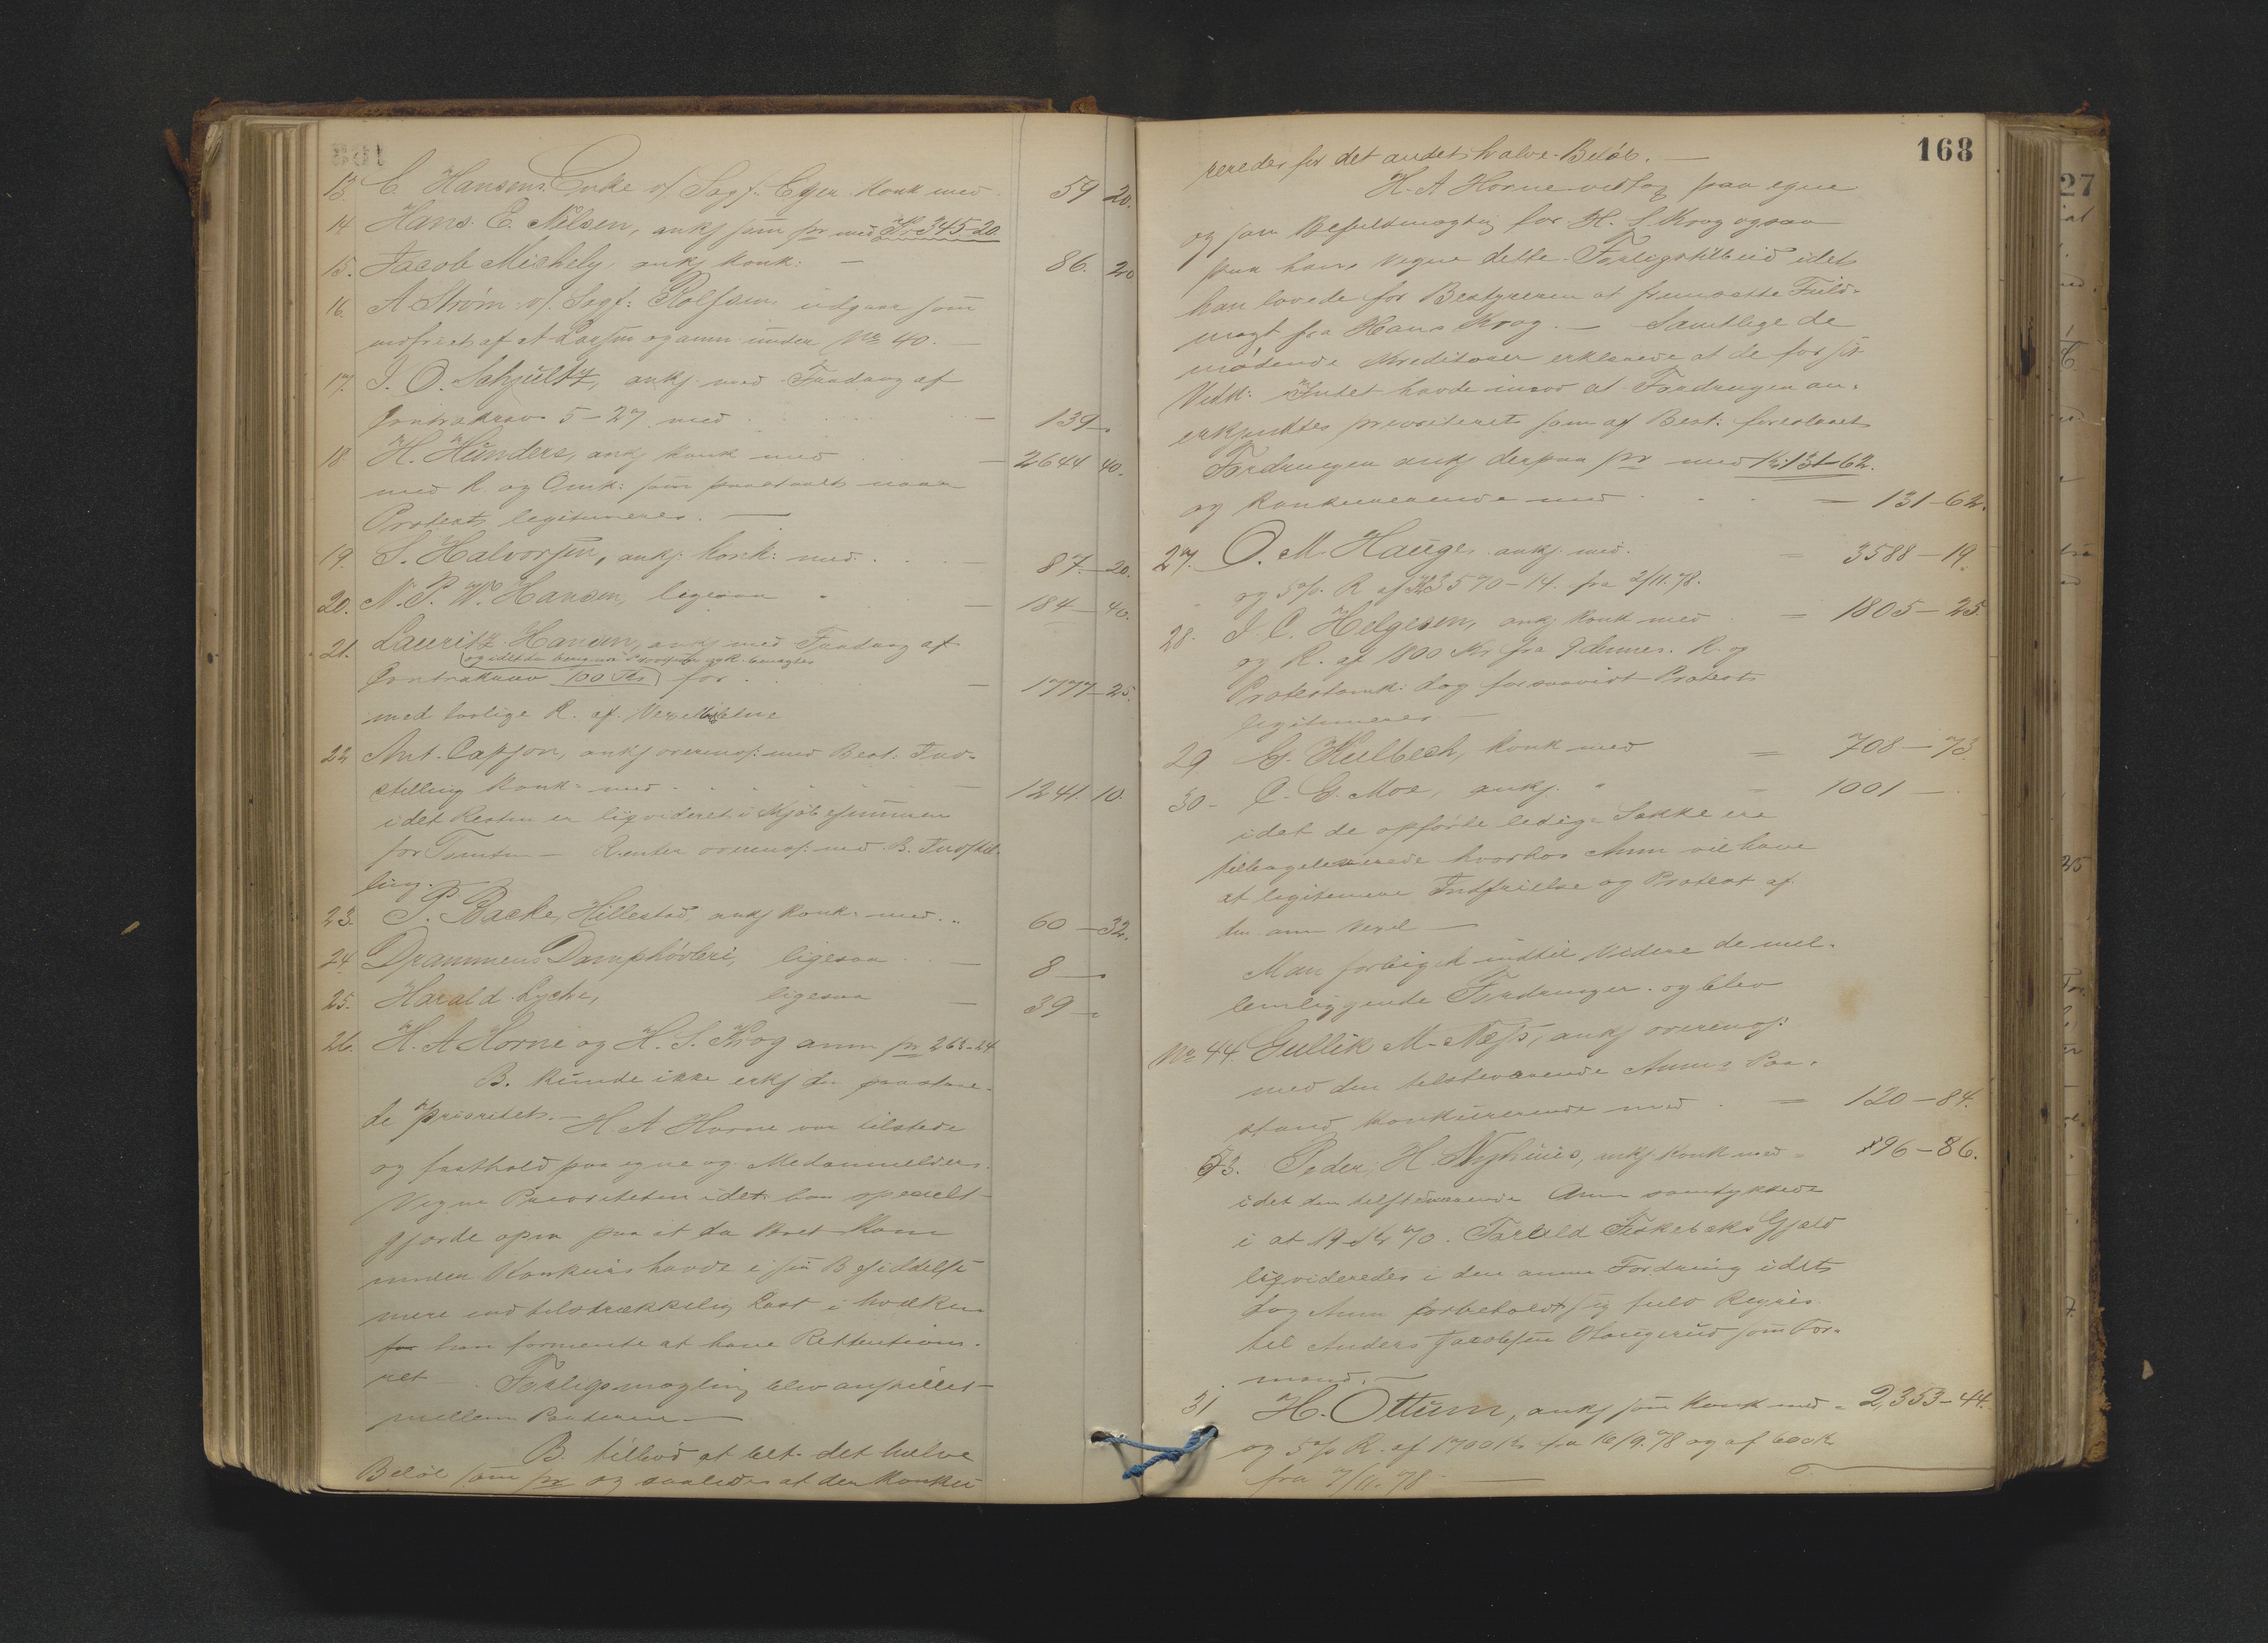 13. C. Hansens Enke v/ Sagf. Eger konk med 59 20.
14 Hans. E. Nilsen, ankj som pr med Kr 345-20
15. Jacob Michely, ankj konk: — 86. 20
16. A Strøm v/. Sagf: Rolfsen, udgaar som
indfriet af A Larsen og anm. under No 40. —
17. I. O. Schjultz, ankj. med Fradrag af
Contrakrav 5-27 med — 139 —
18 H. Hünders, ankj konk med — 2644 40.
med R og Omk: som paastaaet naar
Protest legitimeres. —
19. S. Halvorsen, ankj. konk: med — 87.—20.
20. N. P. W. Hansen, ligesaa — 184—40.
21. Lauritz Hansen, ankj med Fradrag af
Contrakrav 100 Kr for — 1777—25.
med lovlige R. af Vexelbeløbene
22 Ant. Capson, ankj overensst: med Best. Ind-
stilling konk: med — 1241. 10.
idet Resten er ligvideret i Kjøbesummen
for Tomten — Renter overensst: med B. Indstil-
ling. —
23. P. Backe, Hillestad, ankj konk: med. 60—32.
24 Drammens Damphøvleri, ligesaa — 8 —
25. Harald Lyche, ligesaa — 39 —
26. H. A Horne og H. S. Krog anm pr 263-24
B. kunde ikke ankj den paastaae-
de Prioritet. — H. A Horne var tilstede
og fastholdt paa egne og Medanmelders
Vegne Prioriteten idet han specielt
gjorde opm paa at da Boet kom
under Konkurs havde i sin Besiddelse
mere end tilstrækkelig Last i hvilken
for han formente at have Rettentions-
ret —. Forligsmægling blev anstillet
mellem Parterne —
B. tilbød at tilst. det halve
Beløb som pr og saaledes at der konkur-
168
reredes for det andet halve Beløb. —
H. A Horne vedtog paa egne
og som Befuldmægtig for H. S Krog ogsaa
paa hans Vegne dette Forligstilbud idet
han lovede for Bestyreren at fremsætte Fuld-
magt fra Hans Krog. — Samtlige de
mødende Kreditorer erklærede at de for sit
Vedk: Intet havde imod at Fordringen an-
erkjendtes prioriteret som af Best: foreslaaet
Fordringen ankj derpaa pr med Kr. 131-62.
og konkurrerende med — 131-62.
27. O. M. Hauge. ankj. med. — 3588—19.
og 5% R af Kr 3570-14. fra 2/11. 78.
28. I. C. Helgesen, ankj konk med — 1805—25.
og R. af 1800 Kr fra 9 R. og
Protestomk: dog forsaavidt Protest
legitimeres —
29 G. Hulbech, konk med — 708—73.
30- C. G. Moe, ankj. " — 1001 —
idet de opførte ledige Sække ere
tilbageleverede hvorhos Anm vil have
at legitimere Indfrielse og Protest af
den anm Vexel —
Man forbigik indtil Videre de mel-
lemliggende Fordringer og blev
No 44. Gullik M. Næss, ankj overensst:
med den tilstedeværende Anm.s Paa-
stand konkurrerende med — 120—84.
53. Peder, H. Nyhuus, ankj konk med = 896—86.
idet den tilstedeværende Anm samtykkede
i at 19 Kr 70. Tarald Fiskebæks Gjæld
ligvideredes i den anm Fordring idet
dog Anm forbeholdt sig fuld Regres
til Anders Jacobsen Haugerud som For-
mand. —
31 H. Ottum, ankj som konk med = 2,353—44.
og 5% R. af 1700 Kr. fra 16/9. 78 og af 600 Kr
fra 7/11. 78 —